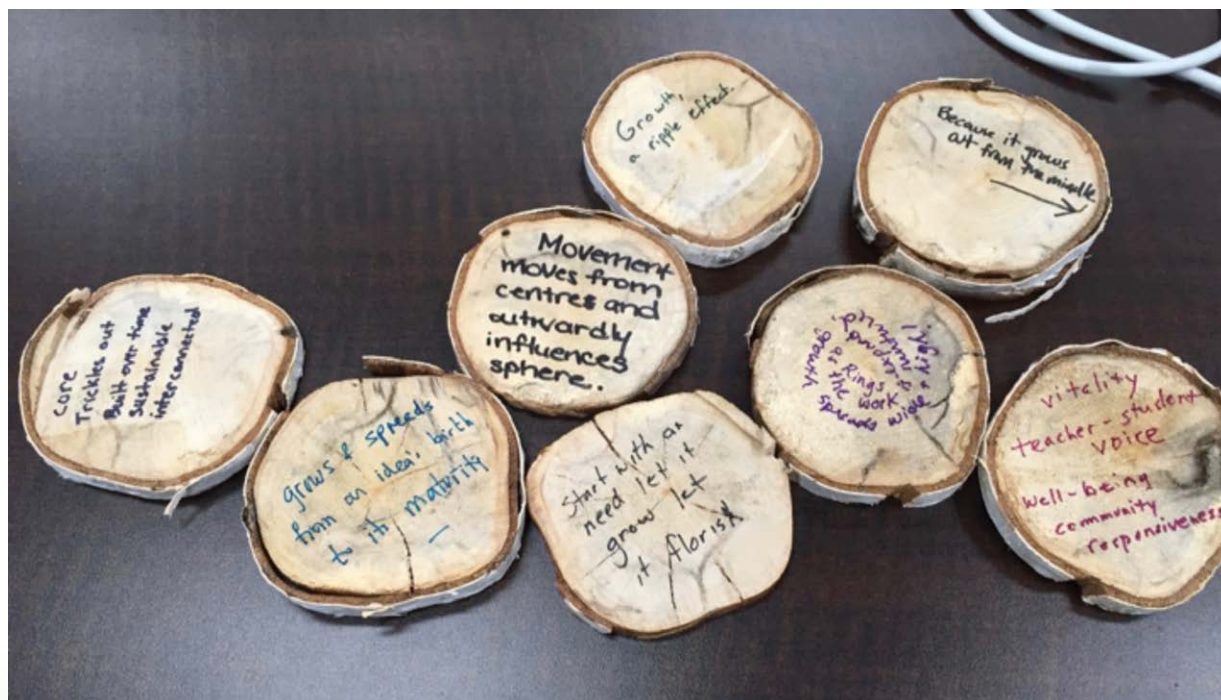 Growth,
a ripple effect.
Because it grows
out from the middle
Movement
moves from
centres and
outwardly
influences
sphere.
core
Trickles out
Built over time
sustainable
interconnected
grows & spreads
from an idea, birth
to its maturity
Start with an
need let it
grow let
it florish
nurtured, growth
is inspired
Rings
as the work
spreads wide
vitality
teacher-student
voice
well-being
community
responsiveness